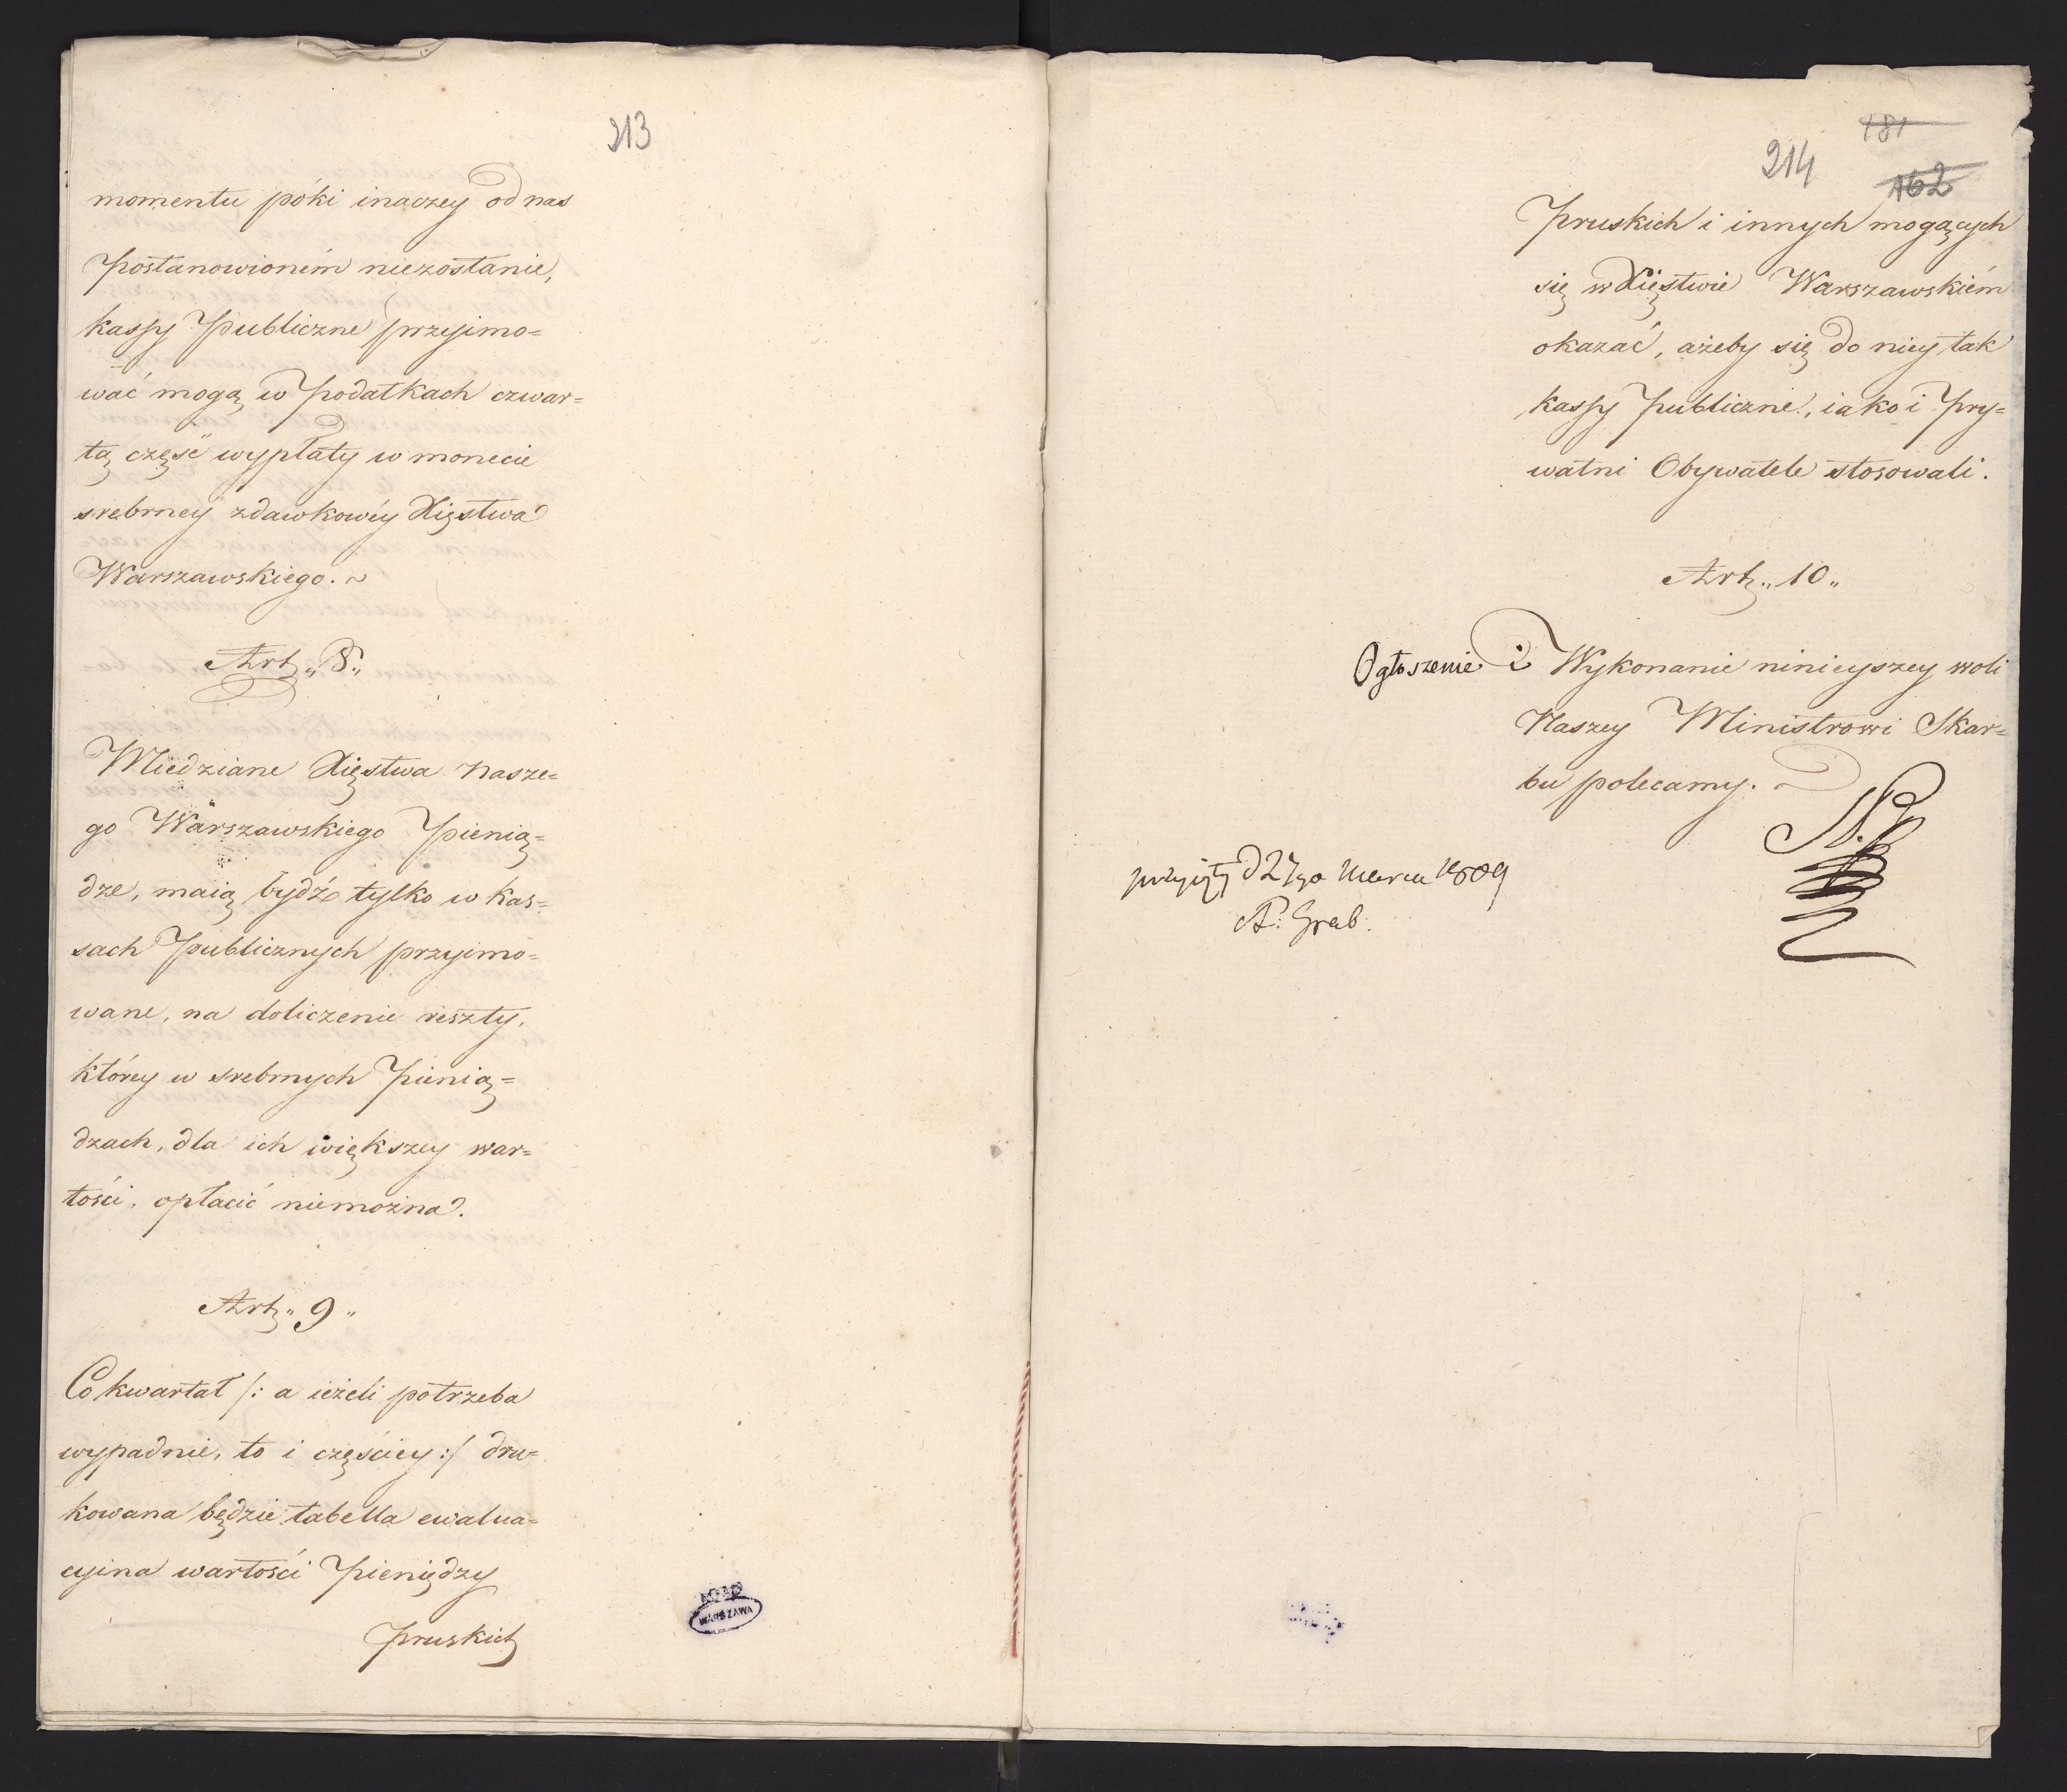 213
momentu póki inaczey od nas
Postanowioném niezostanie,
kassy Publiczne przyimo=
wać mogą w Podatkach czwar=
tą część wypłaty w monecie
srebrney zdawkowéy Xięstwa
Warszawskiego. ~
Art. „ 8 „
Miedziane Xięstwa Nasze=
go Warszawskiego Pienią=
dze, maią bydź tylko w kas=
sach Publicznych przyimo=
wane, na doliczenie reszty,
którey w srebrnych Pienią=
dzach, dla ich większey war=
tości, opłacić niemożna.
Art. „ 9 „
Co kwartał /: a ieżeli potrzeba
wypadnie, to i częściey :/ dru=
kowana będzie tabella ewalua=
cyina wartości Pieniędzy
Pruskich
WARSZAWA
181
214
162
Pruskich i innych mogących
się w Xięstwie Warszawskiém
okazać, ażeby się do niey tak
kassy Publiczne, iako i Pry=
watni Obywatele stosowali.
Art. „ 10 „
Ogłoszenie i Wykonanie ninieyszey woli
Naszey Ministrowi Skar=
bu polecamy. ~
przyięty d 27go Marca 1809
Grab.